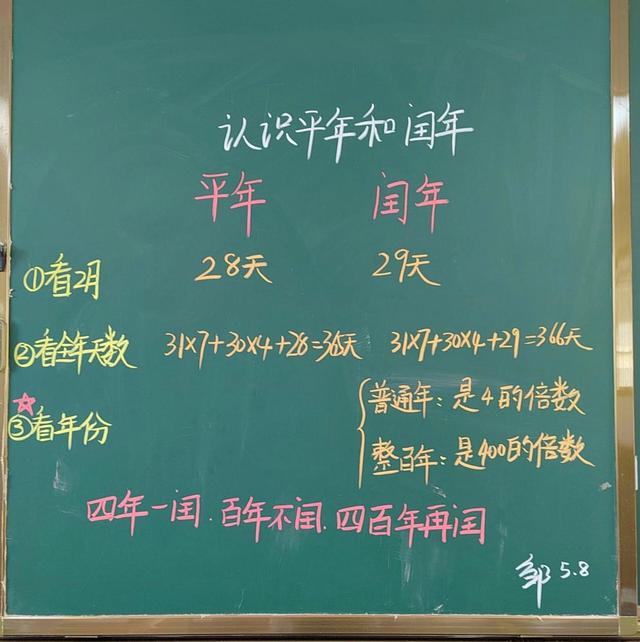 认识平年和闰年
平年 闰年
①看2月 28天 29天
②看全年天数 31×7+30×4+28=365天 31×7+30×4+29=366天
☆
③看年份 普通年：是4的倍数
整百年：是400的倍数
四年一闰.百年不闰.四百年再闰
邹 5.8